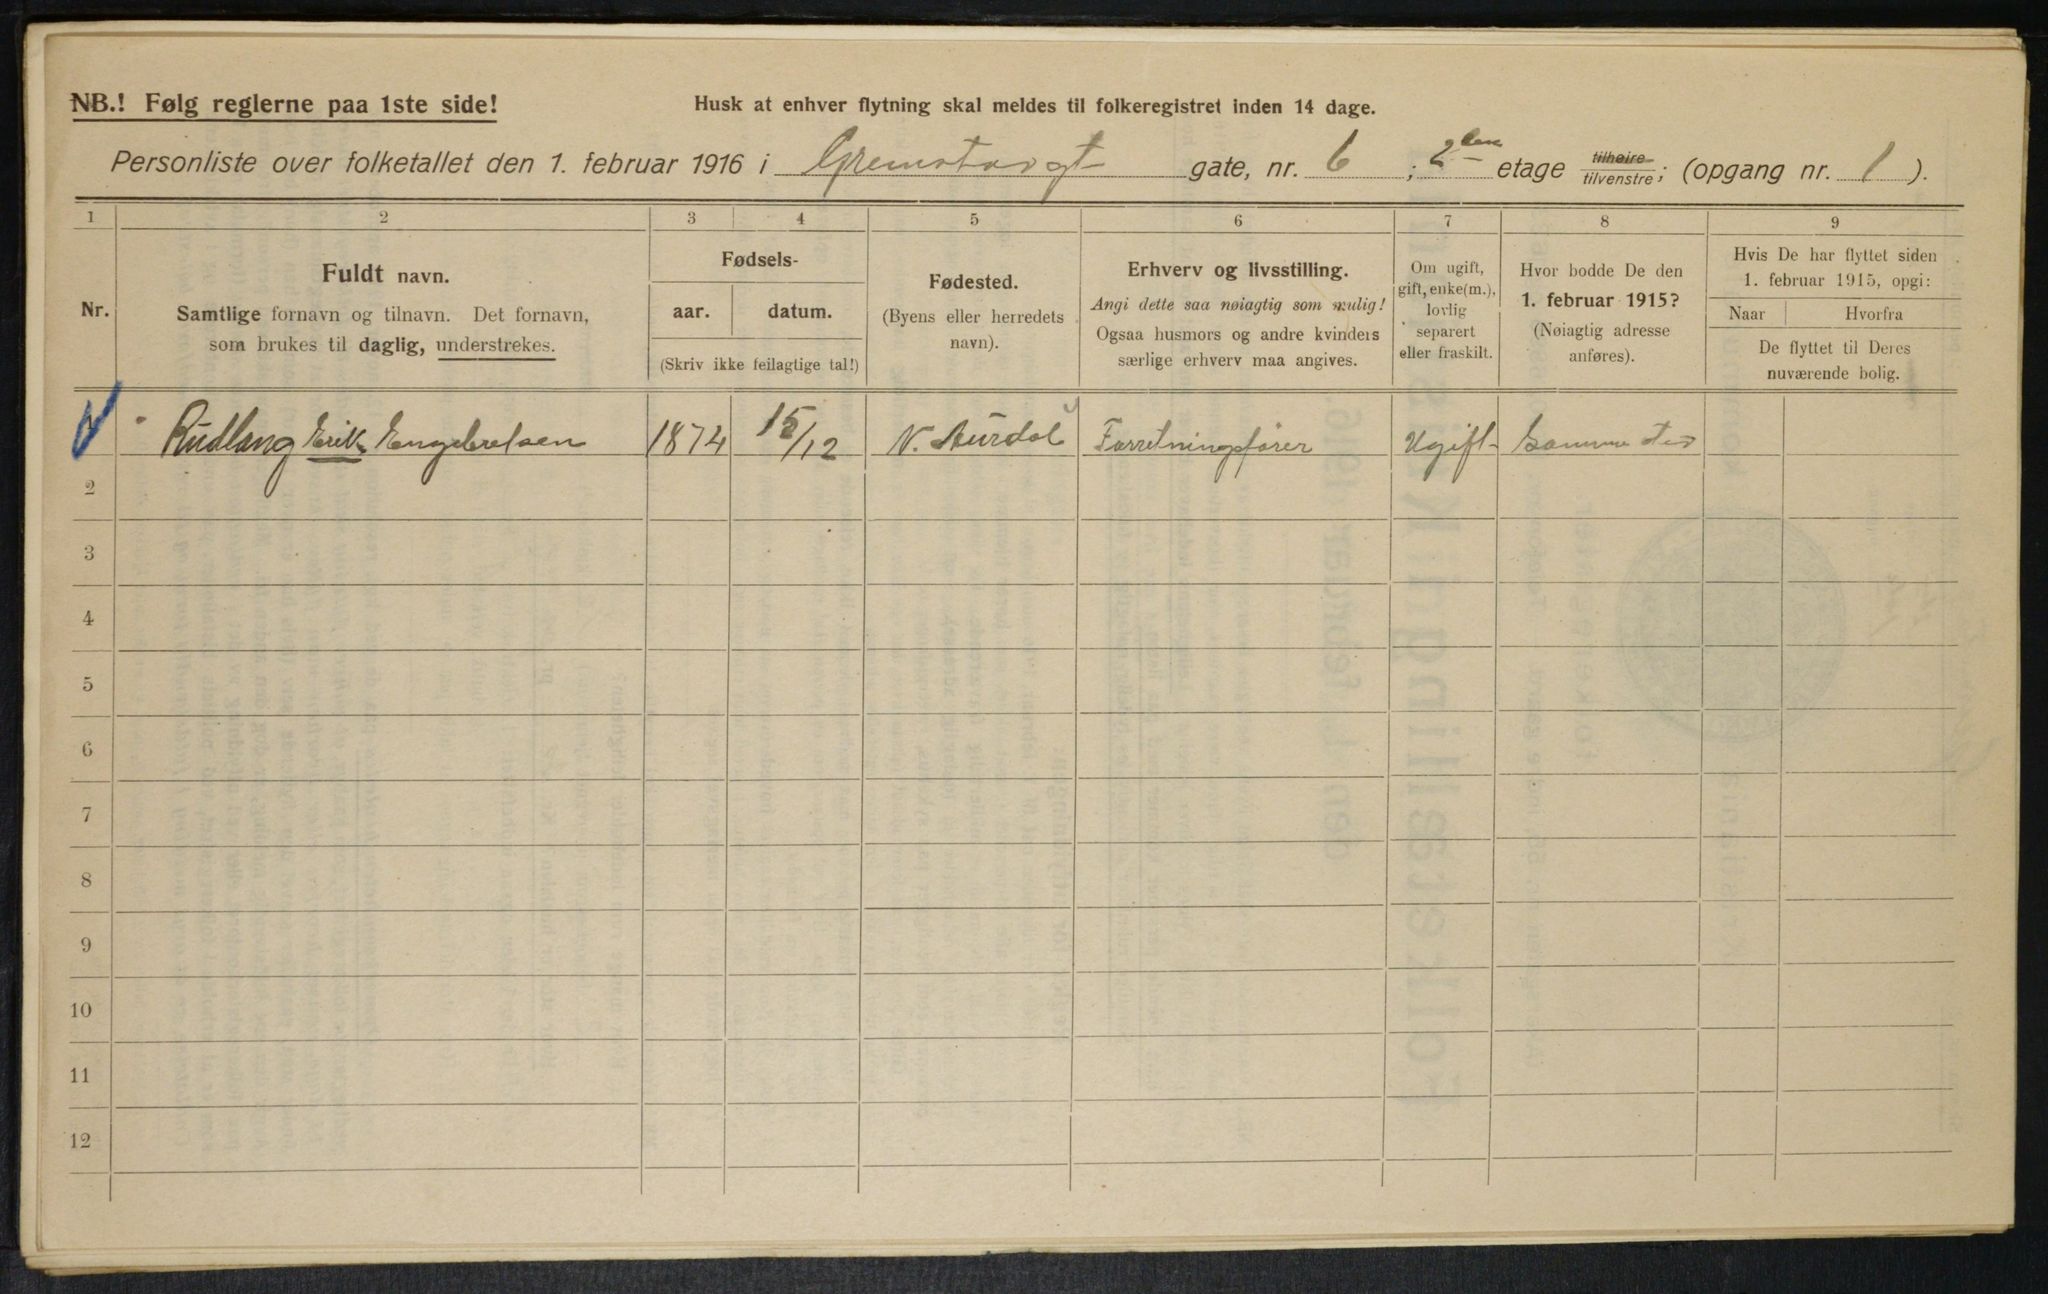 NB.! Følg reglerne paa 1ste side!
Husk at enhver flytning skal meldes til folkeregistret inden 14 dage.
Personliste over folketallet den 1. februar 1916 i Gremstavgt gate, nr. 6 ; 2den etage tilhøire tilvenstre; (opgang nr. 1 ).
1 2 3 4 5 6 7 8 9
Nr.
Fuldt navn.
Samtlige fornavn og tilnavn. Det fornavn,
som brukes til daglig, understrekes.
Fødsels-
aar. datum.
(Skriv ikke feilagtige tal!)
Fødested.
(Byens eller herredets
navn).
Erhverv og livsstilling.
Angi dette saa nøiagtig som mulig!
Ogsaa husmors og andre kvinders
særlige erhverv maa angives.
Om ugift,
gift, enke(m.),
lovlig
separert
eller fraskilt.
Hvor bodde De den
1. februar 1915?
(Nøiagtig adresse
anføres).
Hvis De har flyttet siden
1. februar 1915, opgi:
Naar Hvorfra
De flyttet til Deres
nuværende bolig.
Rudlang Erik Engebretsen 1874 15/12 N. Aurdal Forretningsfører Ugift Samme sted
2
3
4
5
6
7
8
9
10
11
12